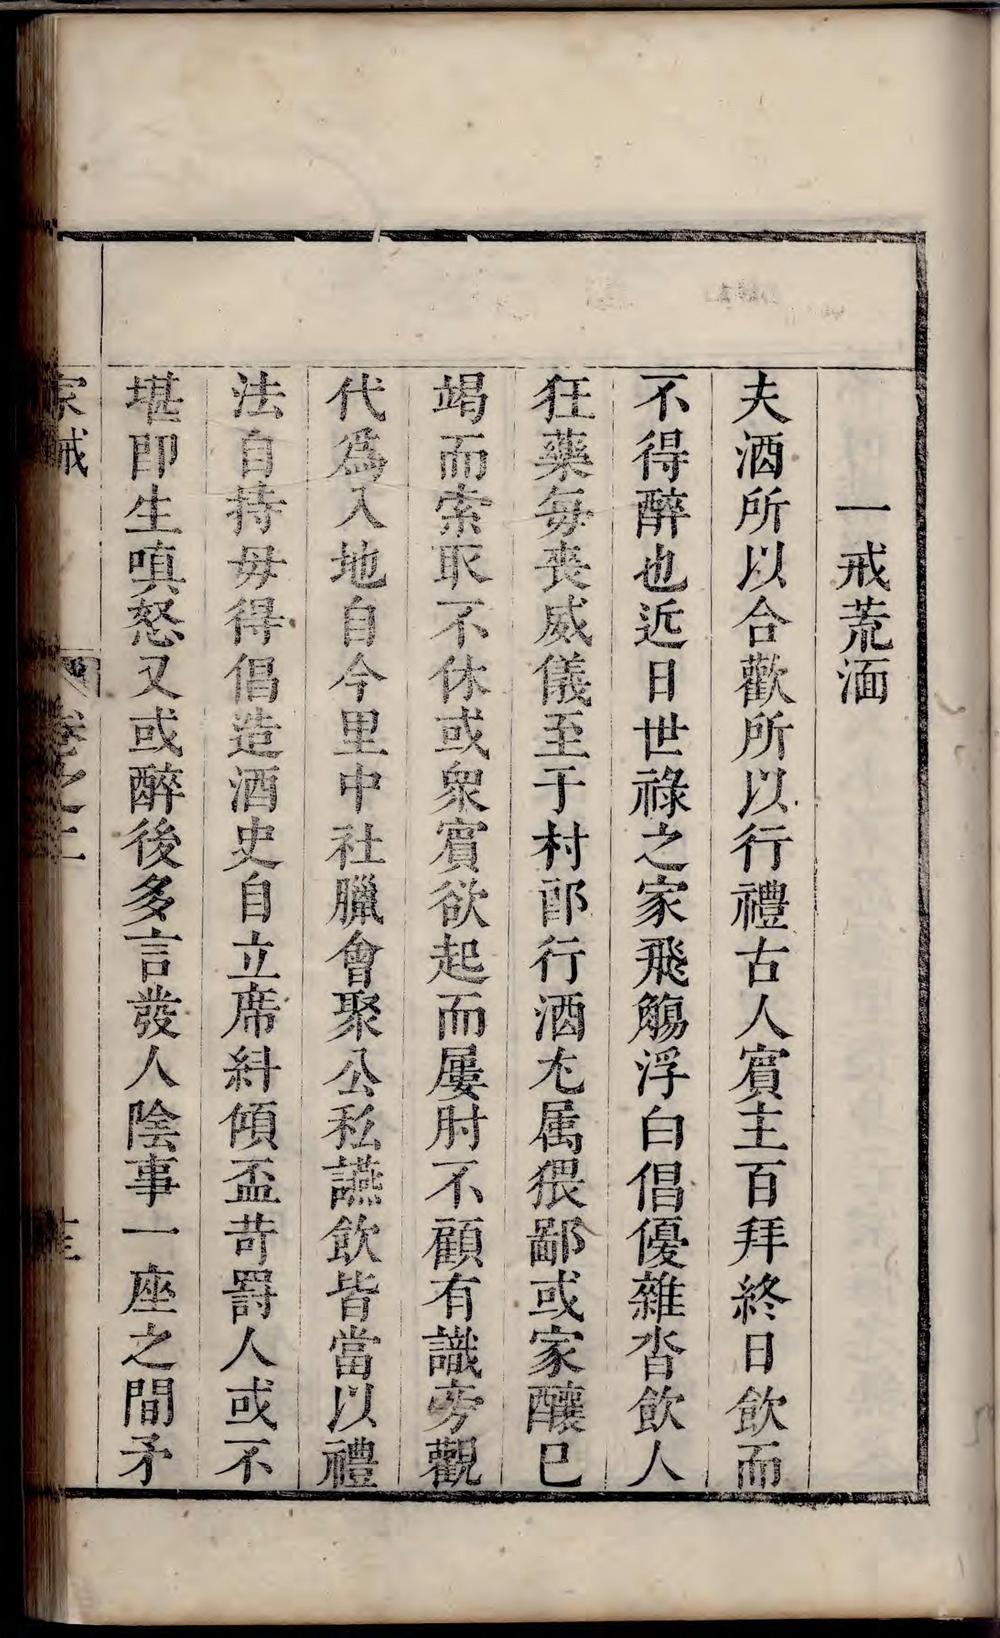 一戒荒湎
夫酒所以合歡所以行禮古人賓主百拜終日飲而
不得醉也近日世祿之家飛觴浮白倡優雜沓飲人
狂藥每喪威儀至于村郎行酒尤属猥鄙或家釀已
竭而索取不休或衆賓欲起而屢肘不顧有識旁觀
代爲入地自今里中社臘會聚公私讌飲皆當以禮
法自持毋得倡造酒史自立席糾傾盃苛罸人或不
堪即生嗔怒又或醉後多言發人陰事一座之間矛
家戒 卷之二